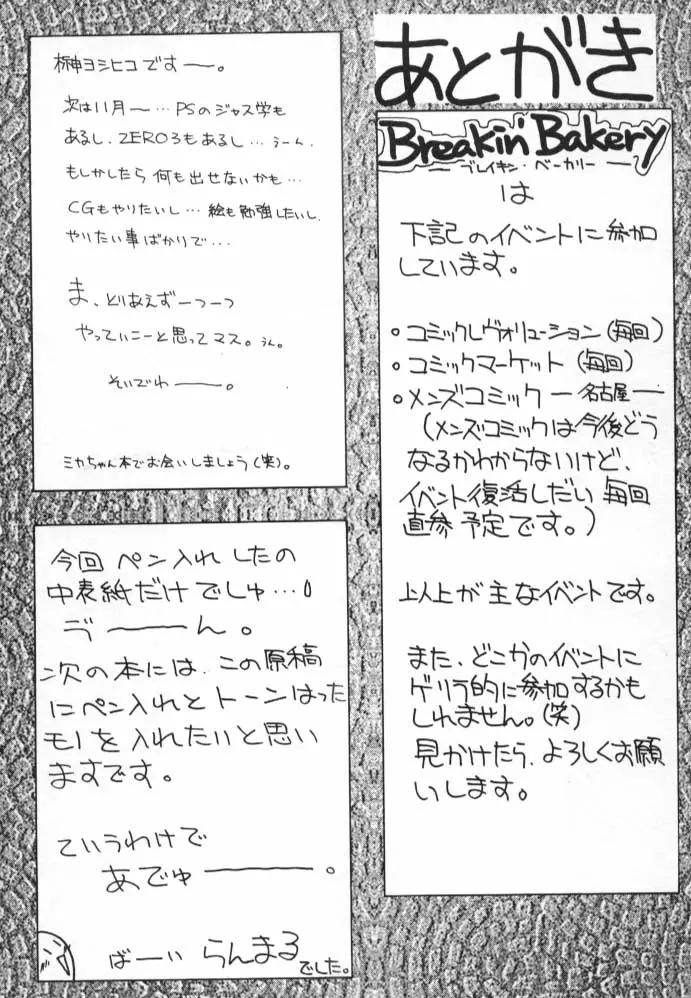 あとがき
Breakin' Bakery
― ブレイキン・ベーカリー ―
は
下記のイベントに参加
しています。
○コミックレヴォリューション(毎回)
○コミックマーケット(毎回)
○メンズコミック ― 名古屋 ―
(メンズコミックは今後どう
なるかわからないけど、
イベント復活しだい毎回
直参予定です。)
以上が主なイベントです。
また、どこかのイベントに
ゲリラ的に参加するかも
しれません。(笑)
見かけたら、よろしくお願
いします。
榊ヨシヒコですー。
次は11月〜…PSのジャス学も
あるし、ZERO3もあるし…うーん、
もしかしたら何も出せないかも…
CGもやりたいし…絵も勉強したいし、
やりたい事ばかりで…
ま、とりあえずーつーつ
やってぃこーと思ってマス。うん。
そいでわ――。
ミカちゃん本でお会いしましょう(笑)。
今回ペン入れしたの
中表紙だけでしゅ…
ゔ――ん。
次の本には、この原稿
にペン入れとトーンはった
モノを入れたいと思い
ますです。
ていうわけで
あでゅ――。
ばーい らんまるでした。